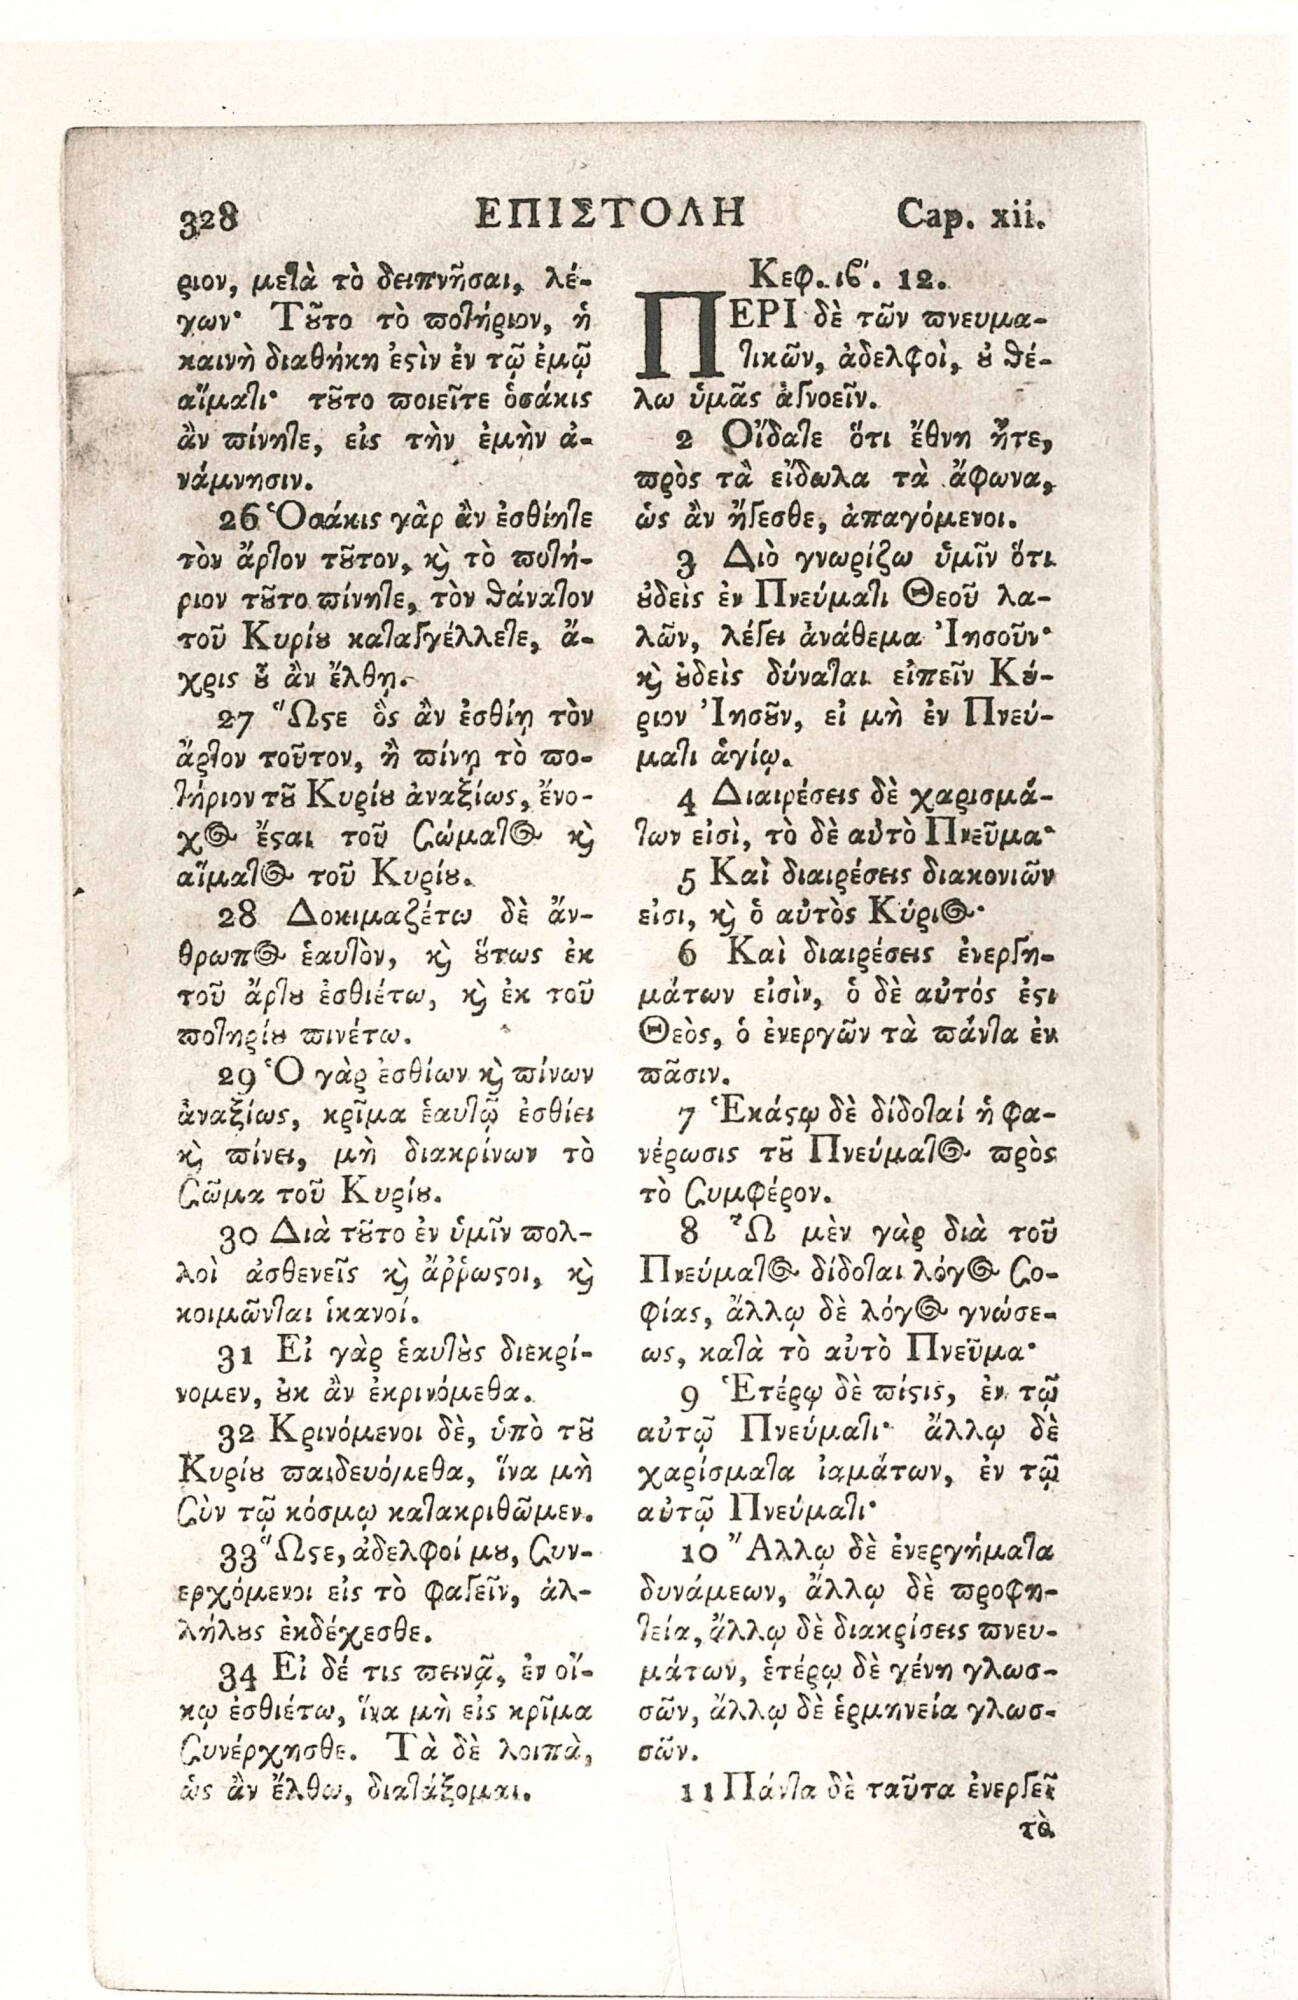 328 ΕΠΙΣΤΟΛΗ Cap. xii.
ριον, μετὰ τὸ δειπνῆσαι, λέ-
γων· Τȣ͂το τὸ ϖοτήριον, ἡ
καινὴ διαθήκη ἐϛὶν ἐν τῷ ἐμῷ
αἵματι· τȣ͂το ϖοιεῖτε ὁσάκις
ἂν ϖίνητε, εἰς τὴν ἐμὴν ἀ-
νάμνησιν.
26 Ὁσάκις γὰρ ἂν ἐσθίητε
τὸν ἄρτον τȣ͂τον, ϗ̀ τὸ ϖοτή-
ριον τȣ͂το ϖίνητε, τὸν θάνατον
τοῦ Κυρίȣ καταγγέλλετε, ἄ-
χρις ȣ͗͂ ἂν ἔλθῃ.
27 Ὥϛε ὃς ἂν ἐσθίῃ τὸν
ἄρτον τοῦτον, ἢ ϖίνῃ τὸ ϖο-
τήριον τȣ͂ Κυρίȣ ἀναξίως, ἔνο-
χος ἔϛαι τοῦ σώματος ϗ̀
αἵματος τοῦ Κυρίȣ.
28 Δοκιμαζέτω δὲ ἄν-
θρωπος ἑαυτὸν, ϗ̀ ȣ̔́τως ἐκ
τοῦ ἄρτȣ ἐσθιέτω, ϗ̀ ἐκ τοῦ
ϖοτηρίȣ ϖινέτω.
29 Ὁ γὰρ ἐσθίων ϗ̀ ϖίνων
ἀναξίως, κρῖμα ἑαυτῷ ἐσθίει
ϗ̀ ϖίνει, μὴ διακρίνων τὸ
σῶμα τοῦ Κυρίȣ.
30 Διὰ τȣ͂το ἐν ὑμῖν ϖολ-
λοὶ ἀσθενεῖς ϗ̀ ἄῤῥωϛοι, ϗ̀
κοιμῶνται ἱκανοί.
31 Εἰ γὰρ ἑαυτȣ̀ς διεκρί-
νομεν, ȣ̓κ ἂν ἐκρινόμεθα.
32 Κρινόμενοι δὲ, ὑπὸ τȣ͂
Κυρίȣ ϖαιδευόμεθα, ἵνα μὴ
σὺν τῷ κόσμῳ κατακριθῶμεν.
33 Ὥϛε, ἀδελφοί μȣ, συν-
ερχόμενοι εἰς τὸ φαγεῖν, ἀλ-
λήλȣς ἐκδέχεσθε.
34 Εἰ δέ τις ϖεινᾷ, ἐν οἴ-
κῳ ἐσθιέτω, ἵνα μὴ εἰς κρῖμα
συνέρχησθε. Τὰ δὲ λοιπὰ,
ὡς ἂν ἔλθω, διατάξομαι.
Κεφ. ιϛʹ. 12.
ΠΕΡΙ δὲ τῶν ϖνευμα-
τικῶν, ἀδελφοὶ, ȣ̓ θέ-
λω ὑμᾶς ἀγνοεῖν.
2 Οἴδατε ὅτι ἔθνη ἦτε,
ϖρὸς τὰ εἴδωλα τὰ ἄφωνα,
ὡς ἂν ἤγεσθε, ἀπαγόμενοι.
3 Διὸ γνωρίζω ὑμῖν ὅτι
ȣ̓δεὶς ἐν Πνεύματι Θεοῦ λα-
λῶν, λέγει ἀνάθεμα Ἰησοῦν·
ϗ̀ ȣ̓δεὶς δύναται εἰπεῖν Κύ-
ριον Ἰησȣ͂ν, εἰ μὴ ἐν Πνεύ-
ματι ἁγίῳ.
4 Διαιρέσεις δὲ χαρισμά-
των εἰσὶ, τὸ δὲ αὐτὸ Πνεῦμα·
5 Καὶ διαιρέσεις διακονιῶν
εἰσι, ϗ̀ ὁ αὐτὸς Κύριος·
6 Καὶ διαιρέσεις ἐνεργη-
μάτων εἰσὶν, ὁ δὲ αὐτός ἐϛι
Θεὸς, ὁ ἐνεργῶν τὰ ϖάντα ἐν
ϖᾶσιν.
7 Ἑκάϛῳ δὲ δίδοταί ἡ φα-
νέρωσις τȣ͂ Πνεύματος ϖρὸς
τὸ συμφέρον.
8 ᾯ μὲν γὰρ διὰ τοῦ
Πνεύματος δίδοται λόγος σο-
φίας, ἄλλῳ δὲ λόγος γνώσε-
ως, κατὰ τὸ αὐτὸ Πνεῦμα·
9 Ἑτέρῳ δὲ ϖίϛις, ἐν τῷ
αὐτῷ Πνεύματι· ἄλλῳ δὲ
χαρίσματα ἰαμάτων, ἐν τῷ
αὐτῷ Πνεύματι·
10 Ἄλλῳ δὲ ἐνεργήματα
δυνάμεων, ἄλλῳ δὲ ϖροφη-
τεία, ἄλλῳ δὲ διακρίσεις ϖνευ-
μάτων, ἑτέρῳ δὲ γένη γλωσ-
σῶν, ἄλλῳ δὲ ἑρμηνεία γλωσ-
σῶν.
11 Πάντα δὲ ταῦτα ἐνεργεῖ
τὸ